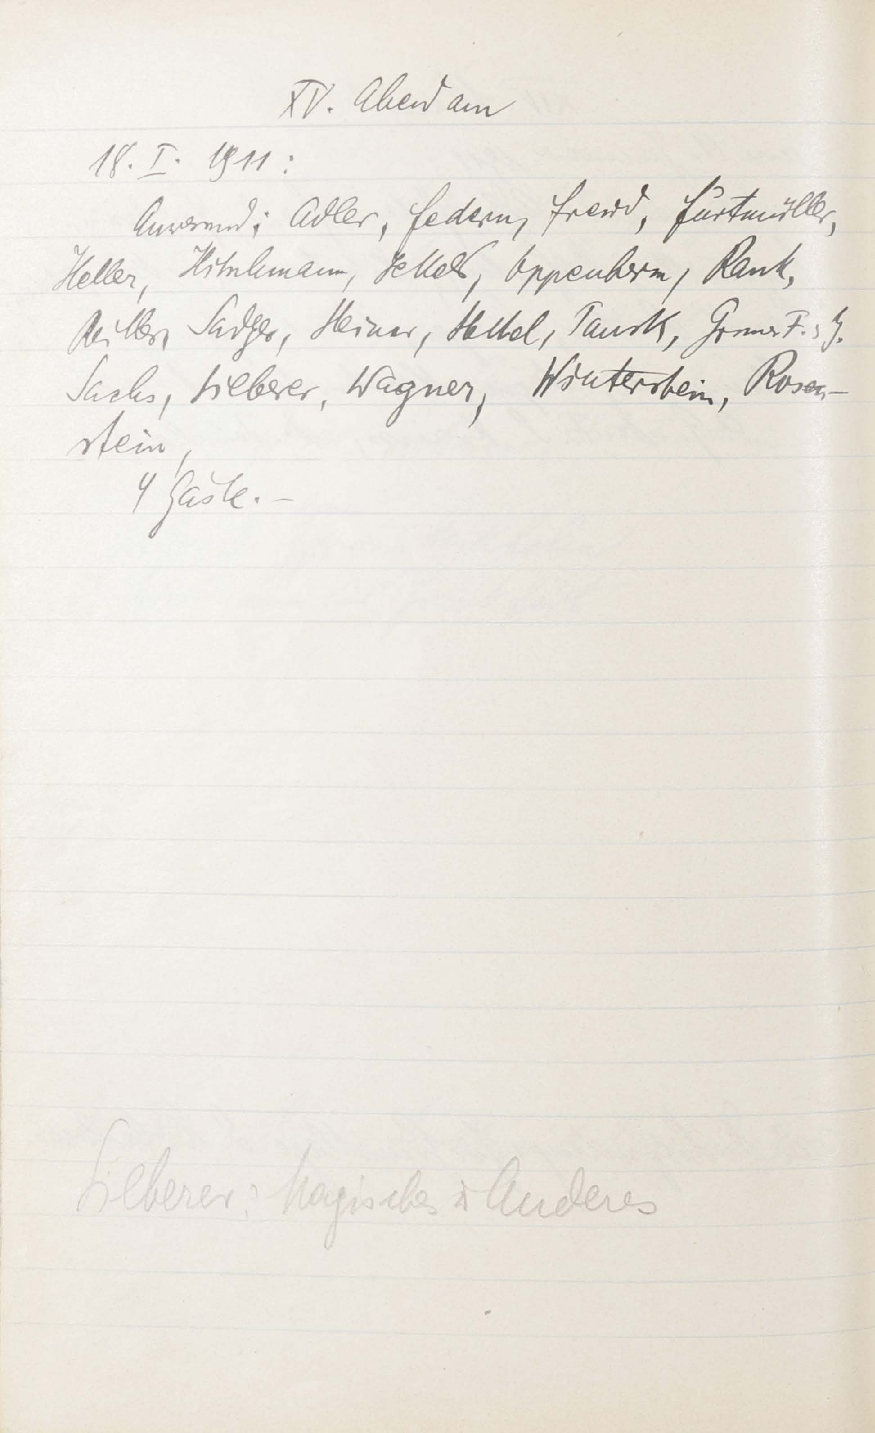 XV. Abend am
18. I. 1911:
Anwesend: Adler, Federn, Freud, Furtmüller,
Heller, Hitschmann, Jekels, Oppenheim, Rank,
Reitler, Sadger, Steiner, Stekel, Tausk, Grüner F. u. G.
Sachs, Silberer, Wagner, Winterstein, Rosen-
stein,
4 Gäste. –
Silberer: Magisches u Anderes